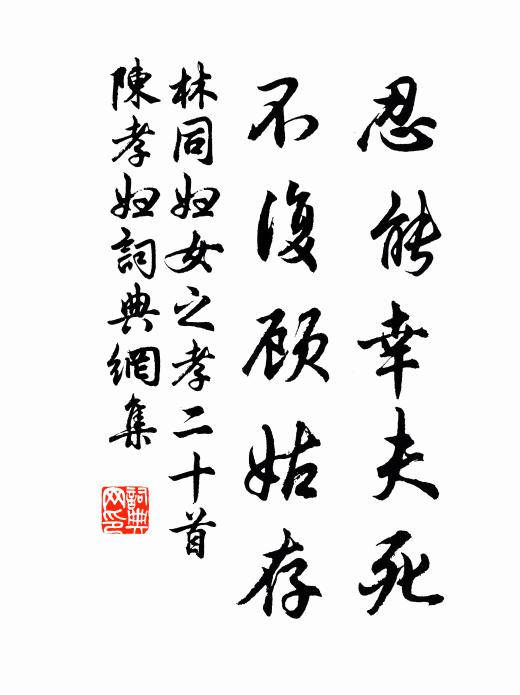 忍能幸夫死
不復顧姑存
林同妇女之孝二十首
陳孝妇詞典網集
詞典网印